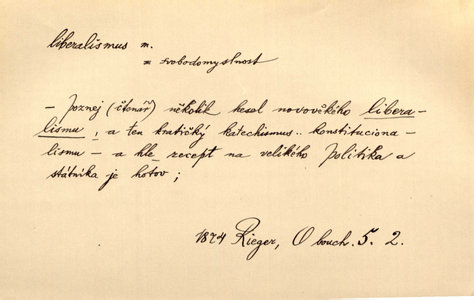 liberalismus m.
= svobodomyslnost
– Poznej (čtenář) několik hesel novověkého libera-
lismu, a ten kratičký katechismus.. konstituciona-
lismu – a hle recept na velikého politika a
státníka je hotov;
1874 Rieger, O bouch. 5. 2.